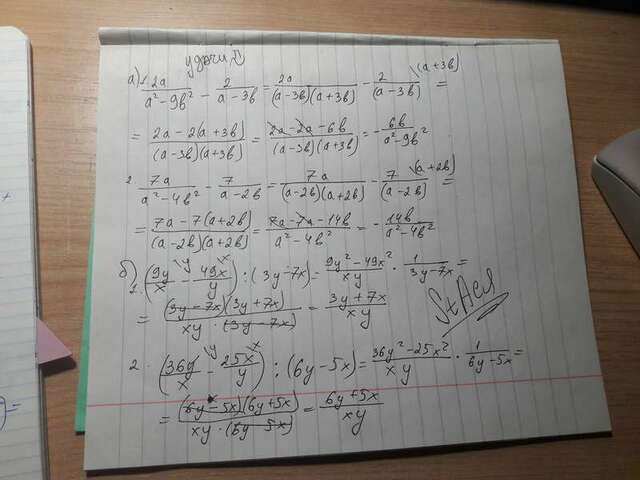 удачи
а) 1. 2a/(a²-9b²) - 2/(a-3b) = 2a/((a-3b)(a+3b)) - 2/(a-3b) \(a+3b) =
= (2a-2(a+3b))/((a-3b)(a+3b)) = (2a-2a-6b)/((a-3b)(a+3b)) = -6b/(a²-9b²)
2. 7a/(a²-4b²) - 7/(a-2b) = 7a/((a-2b)(a+2b)) - 7/(a-2b) \(a+2b) =
= (7a-7(a+2b))/((a-2b)(a+2b)) = (7a-7a-14b)/(a²-4b²) = -14b/(a²-4b²)
б) 1. (9y/x \y - 49x/y \x) : (3y-7x) = (9y²-49x²)/xy · 1/(3y-7x) =
= (3y-7x)(3y+7x)/(xy·(3y-7x)) = (3y+7x)/xy
2. (36y/x \y - 25x/y \x) : (6y-5x) = (36y²-25x²)/xy · 1/(6y-5x) =
= (6y-5x)(6y+5x)/(xy·(6y-5x)) = (6y+5x)/xy